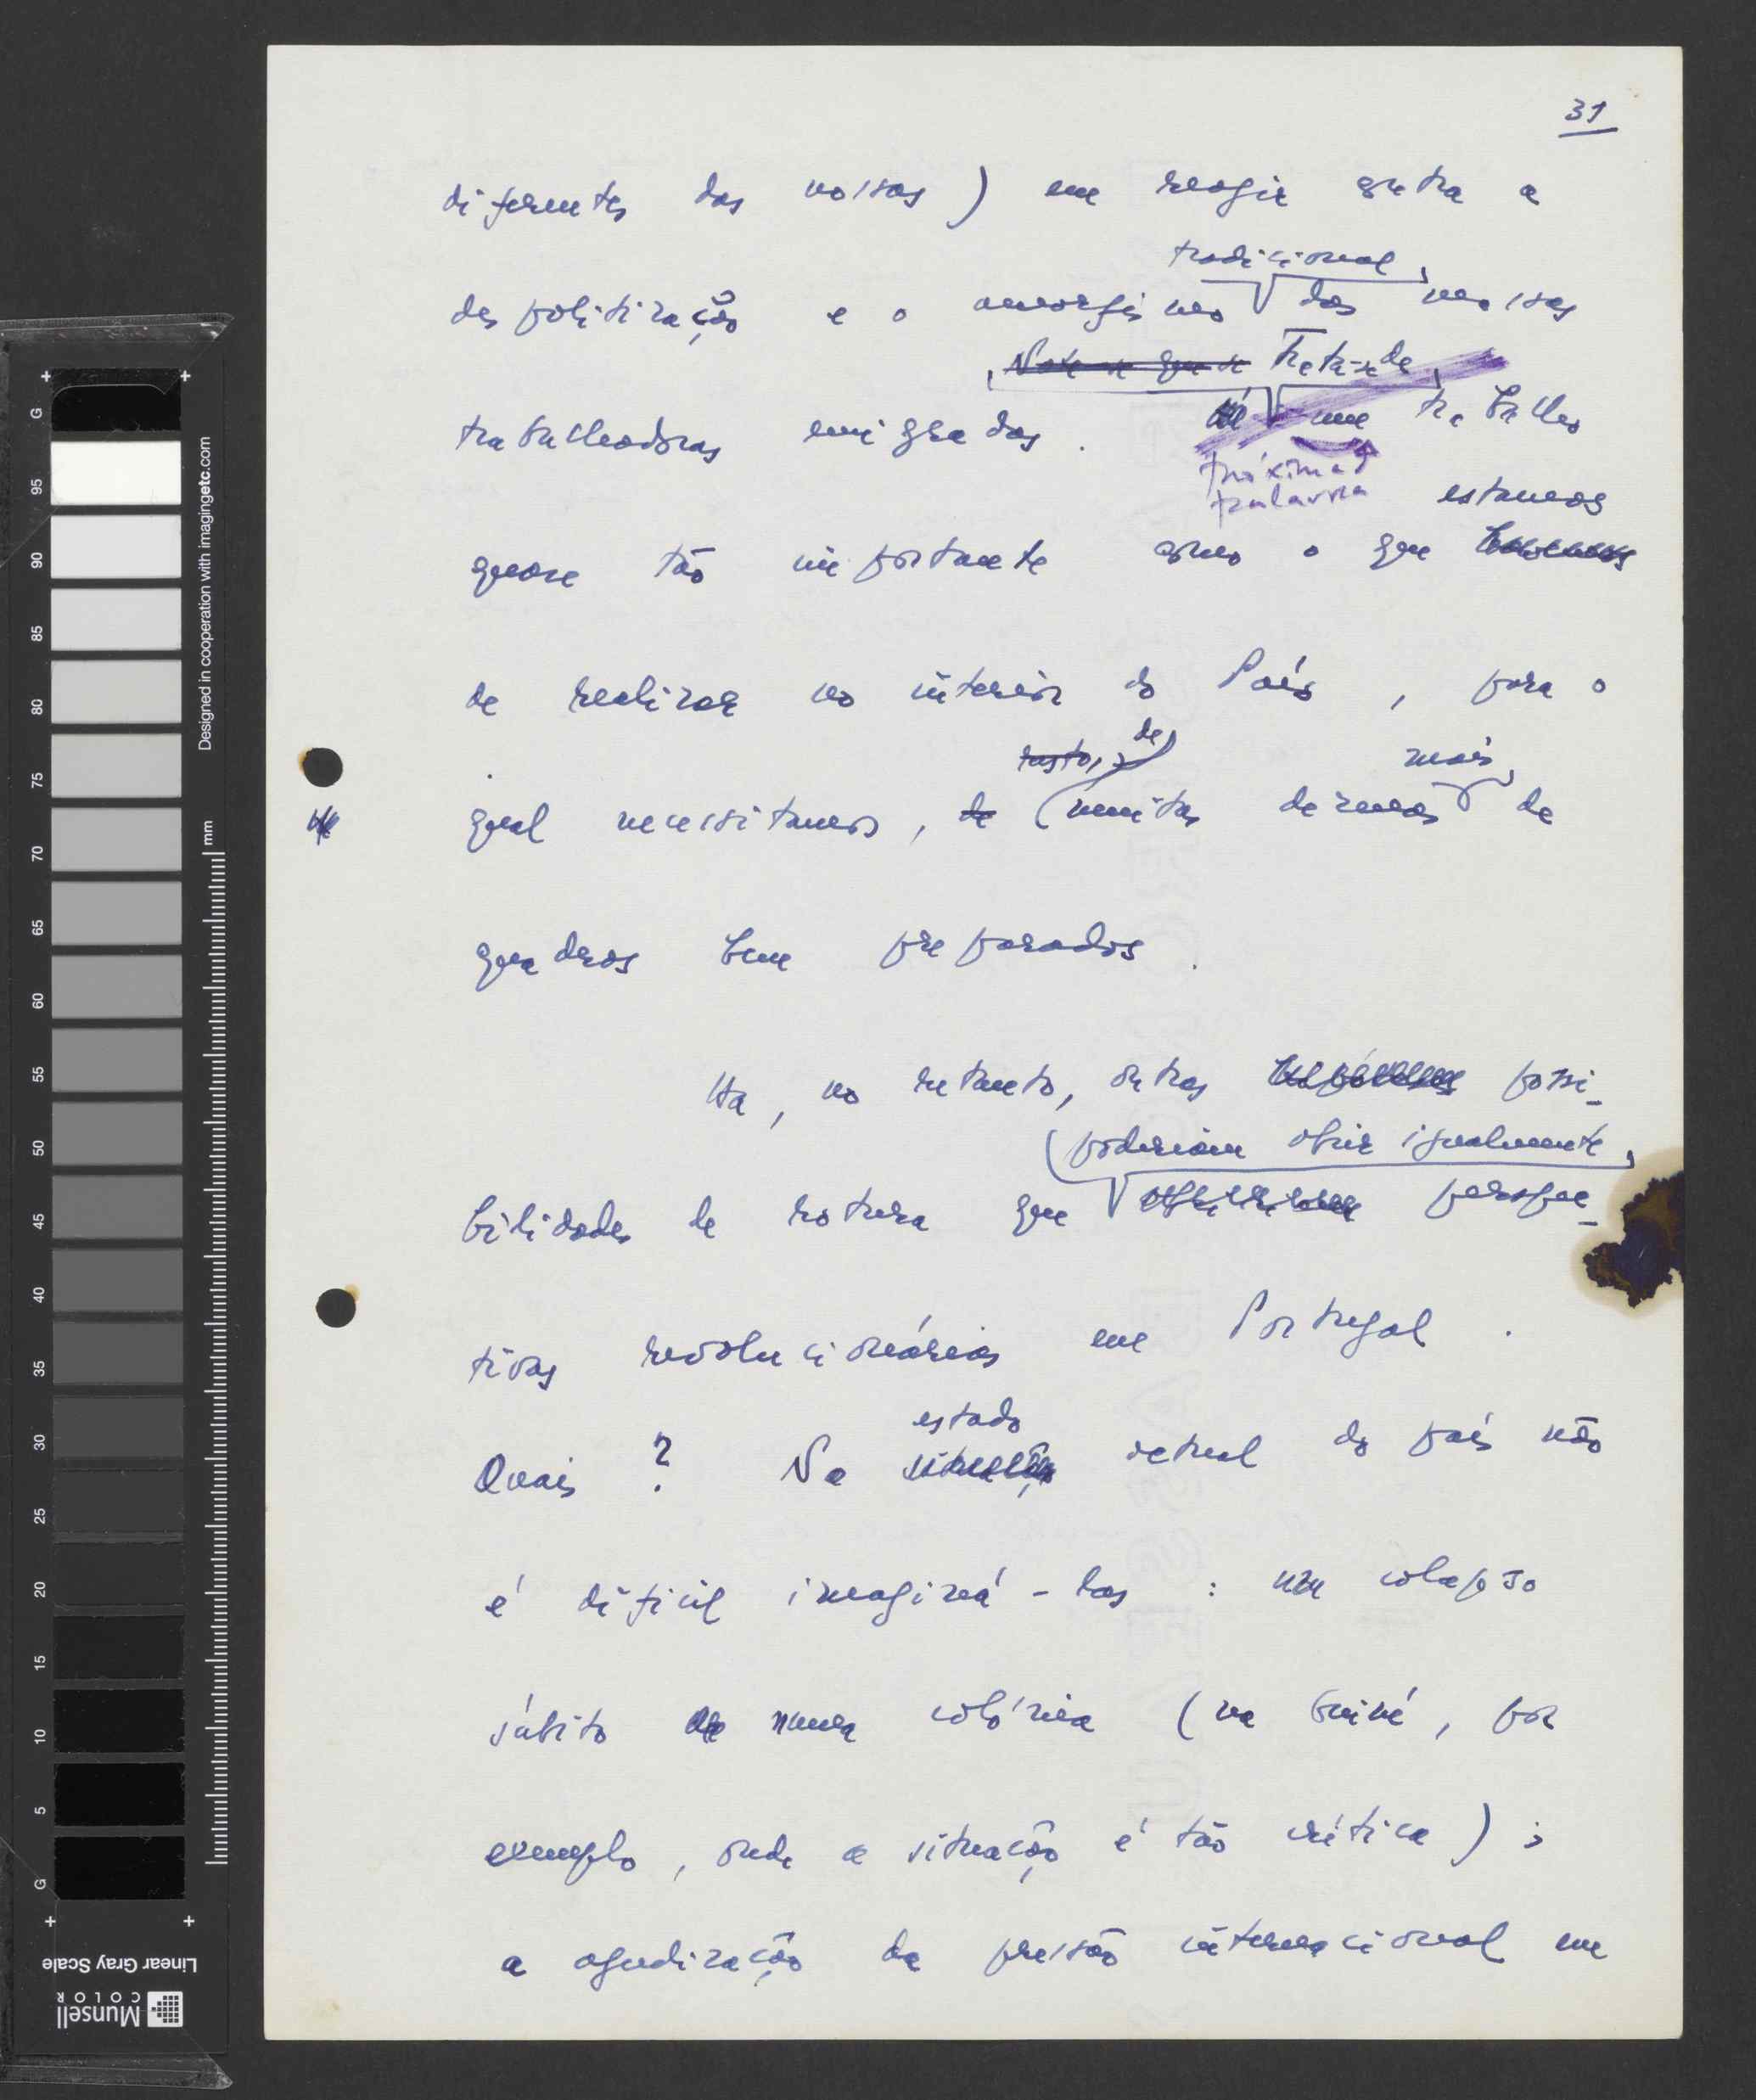 31
diferentes das nossas) em reagir contra a
tradicional
despolitização e o amorfismo das nossas
Note-se que se Trata-se de
trabalhadoras emigradas. um trabalho
próxima
palavra
estamos
quase tão importante como o que
de realizar no interior do País, para o
resto, de mais
qual necessitamos, de muitas dezenas de
quadros bem preparados.
Há, no entanto, outras possi-
poderiam abrir igualmente
bilidades de rotura que abririam perspec-
tivas revolucionárias em Portugal.
estado
Quais? No situação actual do país não
é difícil imaginá-las: um colapso
súbito de numa colónia (na Guiné, por
exemplo, onde a situação é tão crítica);
a agudização da pressão internacional em
Designed in cooperation with imagingetc.com
mm
G 95 90 85 80 75 70 65 60 55 50 45 40 35 30 25 20 15 10 5 G
Linear Gray Scale
Munsell
COLOR